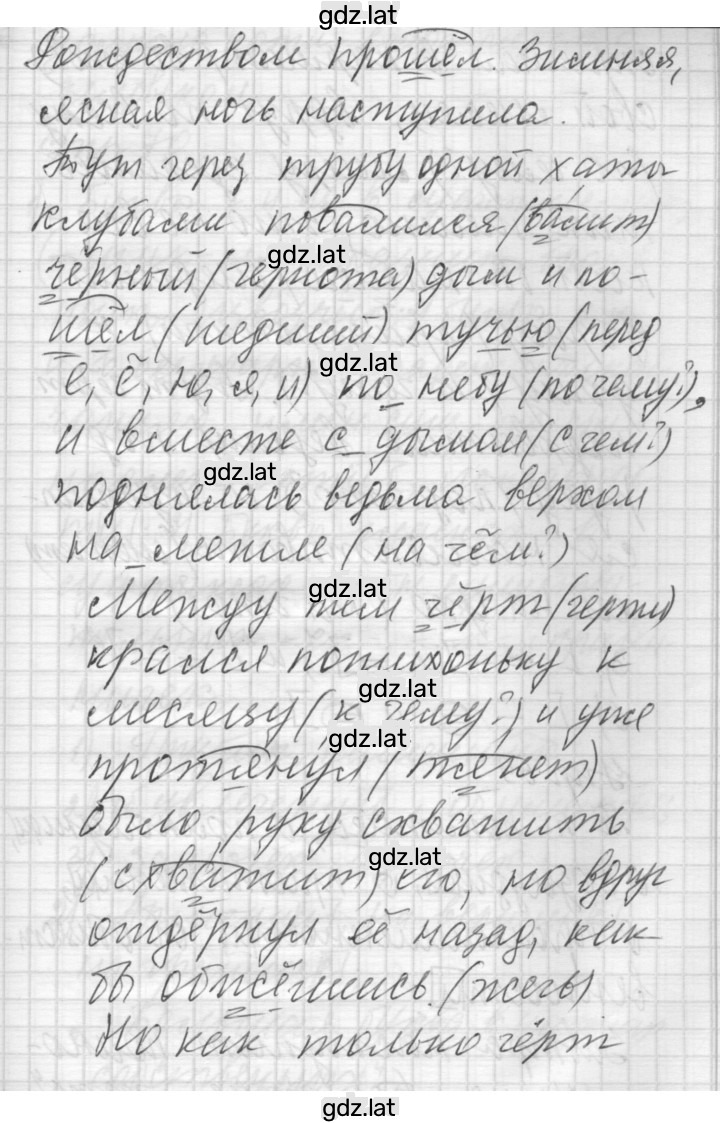 gdz.lat
Рождеством прошёл. Зимняя,
ясная ночь наступила.
Тут через трубу одной хаты
клубами повалился (валит)
gdz.lat
чёрный (чернота) дым и по-
шёл (шедший) тучью (перед
gdz.lat
е, ё, ю, я, и) по небу (по чему?),
и вместе с дымом (с чем?)
gdz.lat
поднялась ведьма верхом
на метле (на чём?)
gdz.lat
Между тем чёрт (черти)
крался потихоньку к
gdz.lat
месяцу (к чему?) и уже
gdz.lat
протянул (тянет)
было руку схватить
gdz.lat
(схватит) его, но вдруг
отдёрнул её назад, как
бы обжёгшись. (жечь)
Но как только чёрт
gdz.lat